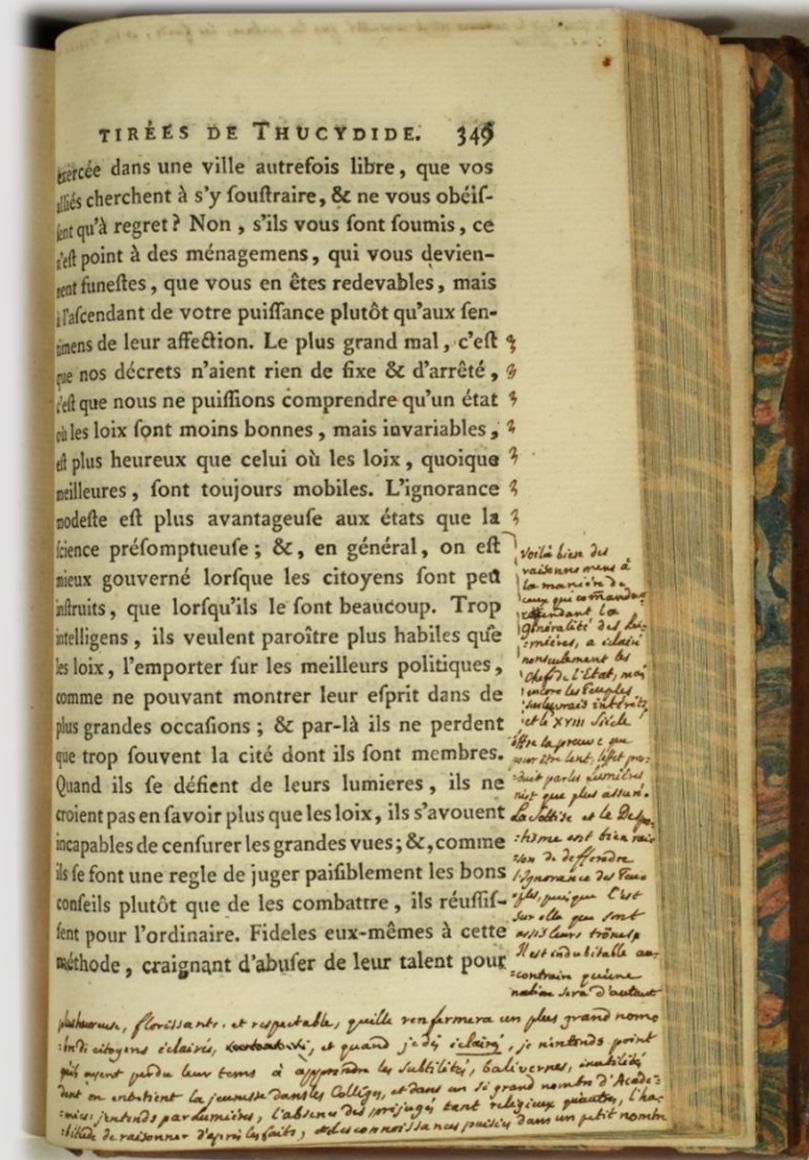 TIRÉES DE THUCYDIDE. 349
exercée dans une ville autrefois libre, que vos
alliés cherchent à s'y ſouſtraire, & ne vous obéiſ-
ſent qu'à regret? Non, s'ils vous ſont ſoumis, ce
n'eſt point à des ménagemens, qui vous devien-
nent funeſtes, que vous en êtes redevables, mais
à l'aſcendant de votre puiſſance plutôt qu'aux ſen-
timens de leur affection. Le plus grand mal, c'eſt
que nos décrets n'aient rien de fixe & d'arrêté,
c'eſt que nous ne puiſſions comprendre qu'un état
où les loix ſont moins bonnes, mais invariables,
eſt plus heureux que celui où les loix, quoique
meilleures, ſont toujours mobiles. L'ignorance
modeſte eſt plus avantageuſe aux états que la
ſcience préſomptueuſe; &, en général, on eſt
mieux gouverné lorſque les citoyens ſont peu
inſtruits, que lorſqu'ils le ſont beaucoup. Trop
intelligens, ils veulent paroître plus habiles que
les loix, l'emporter ſur les meilleurs politiques,
comme ne pouvant montrer leur eſprit dans de
plus grandes occaſions; & par-là ils ne perdent
que trop ſouvent la cité dont ils ſont membres.
Quand ils ſe défient de leurs lumieres, ils ne
croient pas en ſavoir plus que les loix, ils s'avouent
incapables de cenſurer les grandes vues; &, comme
ils ſe ſont une regle de juger paiſiblement les bons
conſeils plutôt que de les combattre, ils réuſſiſ-
ſent pour l'ordinaire. Fideles eux-mêmes à cette
méthode, craignant d'abuſer de leur talent pour
voilà bien des
raisonnemens à
la maniere de
ceux qui comandent
cependant la
généralité des lu-
:mières, a éclairé
nonseulement les
Chefs de l'Etat, mais
encore les Peuples
sur leurs vrais intérêts
et le XVIII Siécle
offre la preuve que
pour être lent, l'effet pro:
:duit par les lumières
n'est que plus assuré.
La Sottise et le Despo:
:tisme ont bien rai:
:son de deffendre
l'Ignorance des Peu:
:ples, puisque C'est
sur elle que sont
assis leurs trônes.
Il est indubitable au:
:contraire qu'une
nation sera d'autant
plus heureuse, florissante. et respectable, qu'elle renfermera un plus grand nom:
:bre de citoyens éclairés, et quand je dis éclairés, je n'entends point
qu'ils ayent perdu leur tems à apprendre les subtilités, balivernes, inutilités
dont on entretient la jeunesse dans les Colléges, et dans un si grand nombre d'Acadé:
:mies: j'entends par lumières, l'absence des préjugés tant religieux qu'autres, l'ha:
:bitude de raisonner d'après les faits, et des connoissances puisées dans un petit nombre